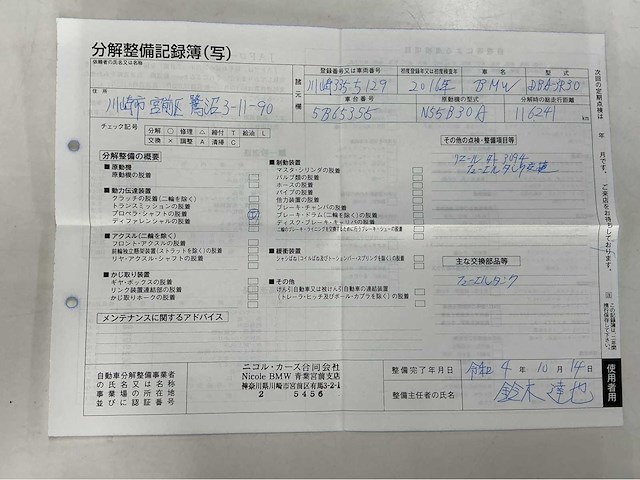 分解整備記録簿(写)
依頼者の氏名又は名称
住所
川崎市宮前区鷺沼3-11-90
諸元欄
登録番号又は車両番号
初度登録年又は初度検査年
車名
型式
川崎335 5129
2016年
BMW
DBA-3R30
車台番号
原動機の型式
分解時の総走行距離
5B65355
N55B30A
116241 km
次回の定期点検は 年 月です。ご来店をお待ちしております。
チェック記号
分解 ○ 修理 △ 締付 T 給油 L
交換 × 調整 A 清掃 C
分解整備の概要
■原動機
原動機の脱着
■動力伝達装置
クラッチの脱着(二輪を除く)
トランスミッションの脱着
プロペラ・シャフトの脱着
ディファレンシャルの脱着
■アクスル(二輪を除く)
フロント・アクスルの脱着
前輪独立懸架装置(ストラットを除く)の脱着
リヤ・アクスル・シャフトの脱着
■かじ取り装置
ギヤ・ボックスの脱着
リンク装置連結部の脱着
かじ取りホークの脱着
■制動装置
マスタ・シリンダの脱着
バルブ類の脱着
ホースの脱着
パイプの脱着
倍力装置の脱着
ブレーキ・チャンバの脱着
ブレーキ・ドラム(二輪を除く)の脱着
ディスク・ブレーキ・キャリパの脱着
二輪のブレーキ・ライニングを交換するために行うブレーキ・シューの脱着
■緩衝装置
シャシばね(コイルばね及びトーションバー・スプリングを除く)の脱着
■その他
けん引自動車又は被けん引自動車の連結装置
(トレーラ・ヒッチ及びボール・カプラを除く)の脱着
その他の点検・整備項目等
主な交換部品等
フューエルタンク
メンテナンスに関するアドバイス
自動車分解整備事業者
の氏名又は名称
事業場の所在地
並びに認証番号
ニコル・カース合同会社
Nicole BMW 青葉宮前支店
神奈川県川崎市宮前区有馬3-2-1
2 5456
整備完了年月日 令和4年10月14日
整備主任者の氏名 鈴木達也
使用者用